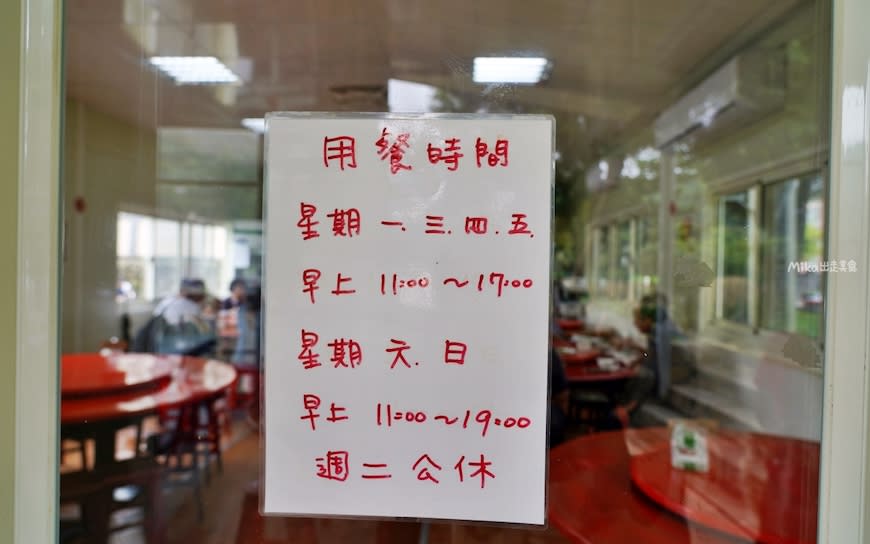 用餐時間
星期一.三.四.五.
早上 11:00~17:00
星期六.日
早上 11:00~19:00
週二公休
Mika出走美食